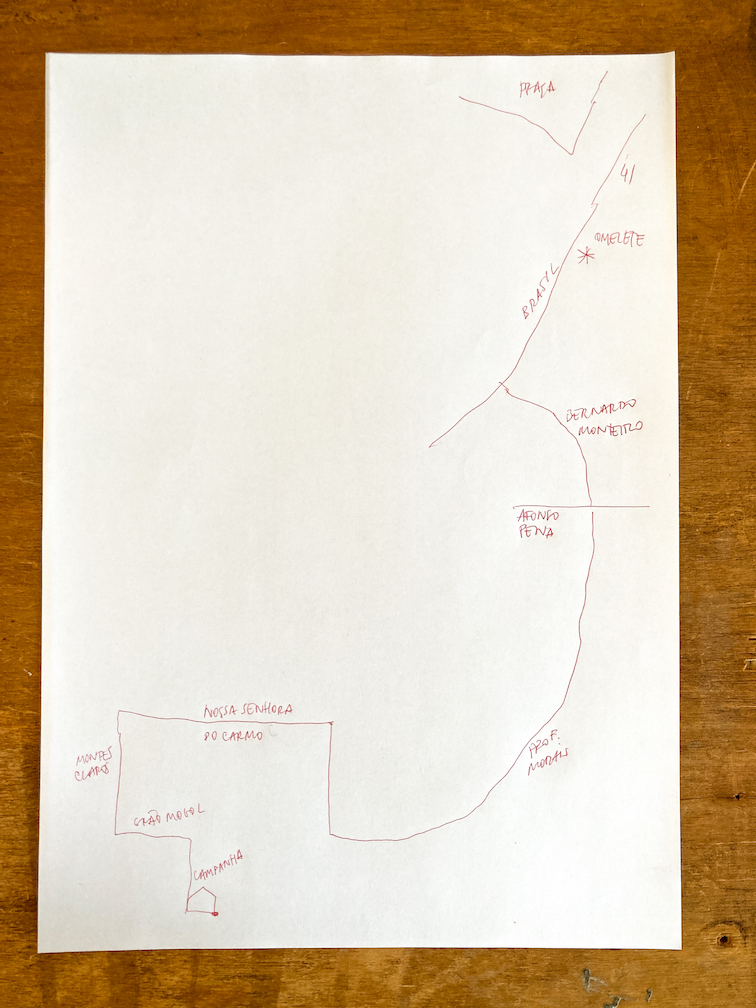 PRAÇA
41
OMELETE
BRASIL
BERNARDO
MONTEIRO
AFONSO
PENA
NOSSA SENHORA
DO CARMO
PROF.
MORAIS
MONTES
CLAROS
GRÃO MOGOL
CAMPANHA